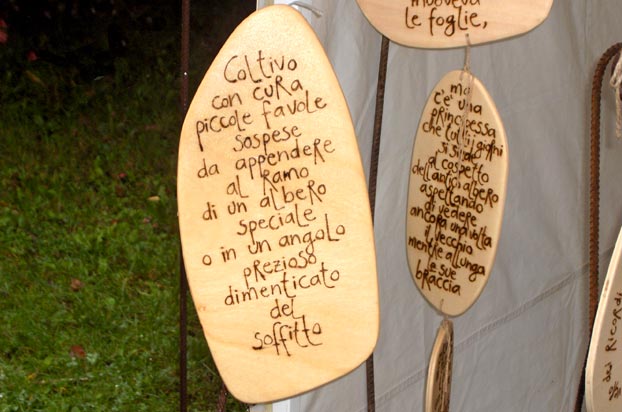 Coltivo
con cura
piccole favole
sospese
da appendere
al ramo
di un albero
speciale
o in un angolo
prezioso
dimenticato
del
soffitto
muoveva
le foglie,
ma
c'è una
principessa
che tutti i giorni
si siede
al cospetto
dell'antico albero
aspettando
di vedere
ancora una volta
il vecchio
mentre allunga
le sue
braccia
dai Ricordi